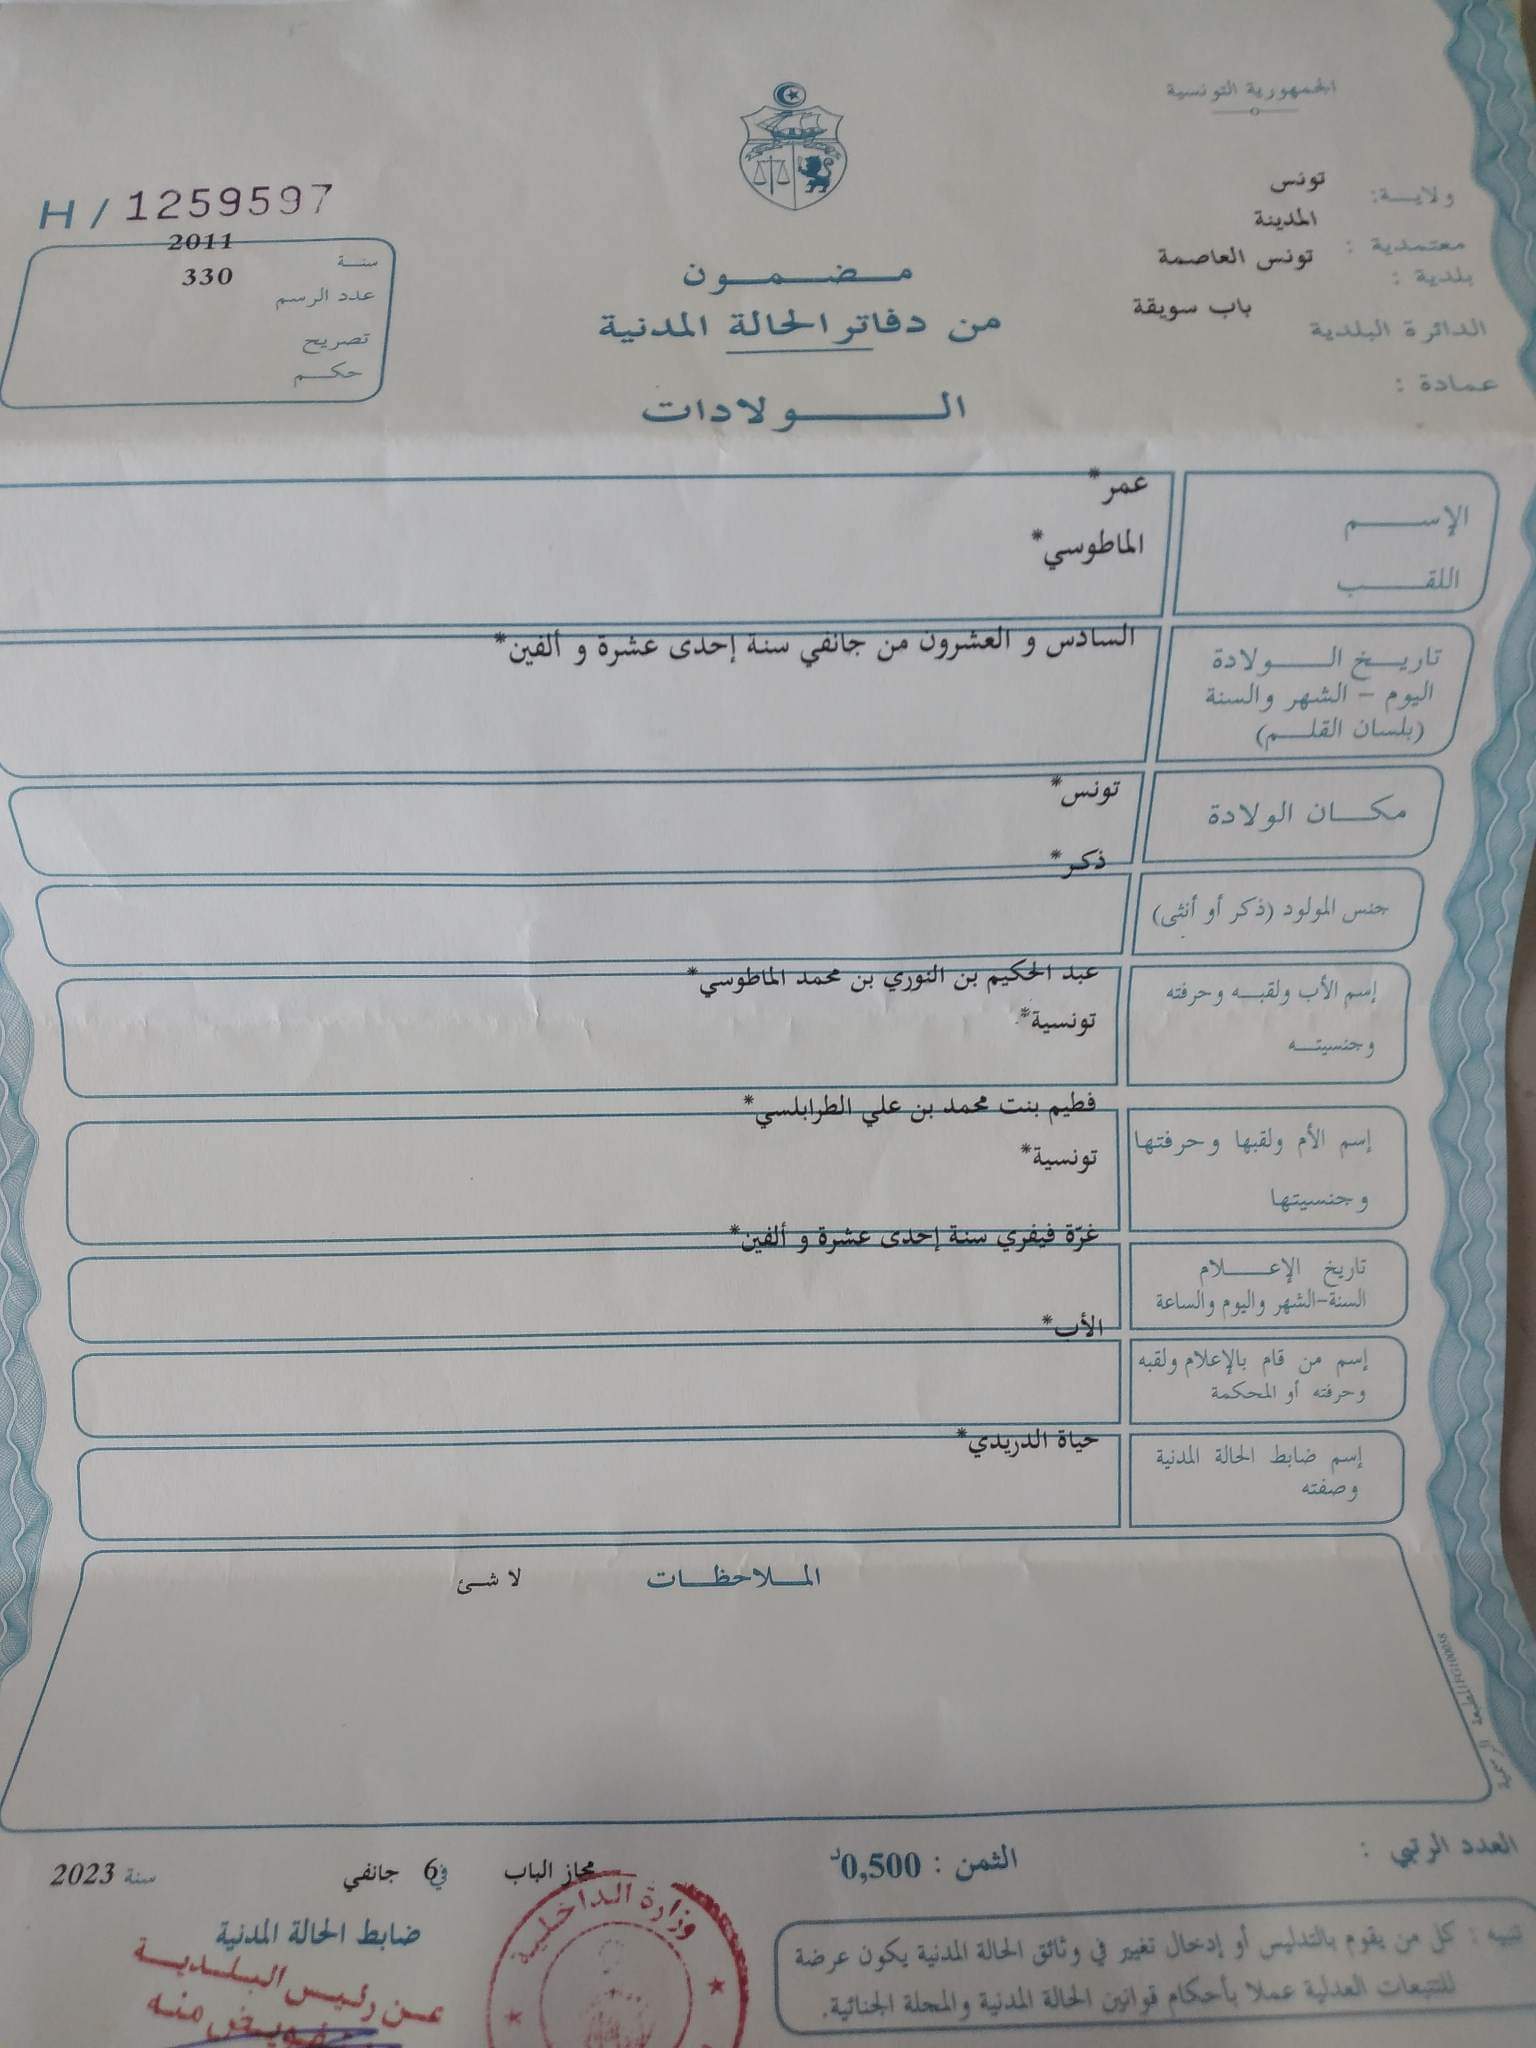 الجمهورية التونسية
ولايـــة: تونس
معتمدية : المدينة
بلدية : تونس العاصمة
الدائرة البلدية باب سويقة
عمادة :
H / 1259597
سنــة 2011
عدد الرسم 330
تصريح
حكــم
مـضـمـون
من دفاتر الحالة المدنية
الـولادات
الإســـم عمر*
اللقـــب الماطوسي*
تاريـخ الـولادة السادس و العشرون من جانفي سنة إحدى عشرة و ألفين*
اليوم - الشهر والسنة
(بلسان القلـم)
مكـان الولادة تونس*
جنس المولود (ذكر أو أنثى) ذكر*
إسم الأب ولقبـه وحرفته عبد الحكيم بن النوري بن محمد الماطوسي*
وجنسيتـه تونسية*
إسم الأم ولقبها وحرفتها فطيم بنت محمد بن علي الطرابلسي*
وجنسيتها تونسية*
تاريخ الإعـــلام غرّة فيفري سنة إحدى عشرة و ألفين*
السنة-الشهر واليوم والساعة
إسم من قام بالإعلام ولقبه الأب*
وحرفته أو المحكمة
إسم ضابط الحالة المدنية حياة الدريدي*
وصفته
المـلاحظـات لا شئ
العدد الرتبي :
الثمن : 0,500د
مجاز الباب في 6 جانفي سنة 2023
ضابط الحالة المدنية
عـن رئيس البـلـديـة
وزارة الداخلية
تنبيه : كل من يقوم بالتدليس أو إدخال تغيير في وثائق الحالة المدنية يكون عرضة
للتتبعات العدلية عملا بأحكام قوانين الحالة المدنية والمجلة الجنائية.